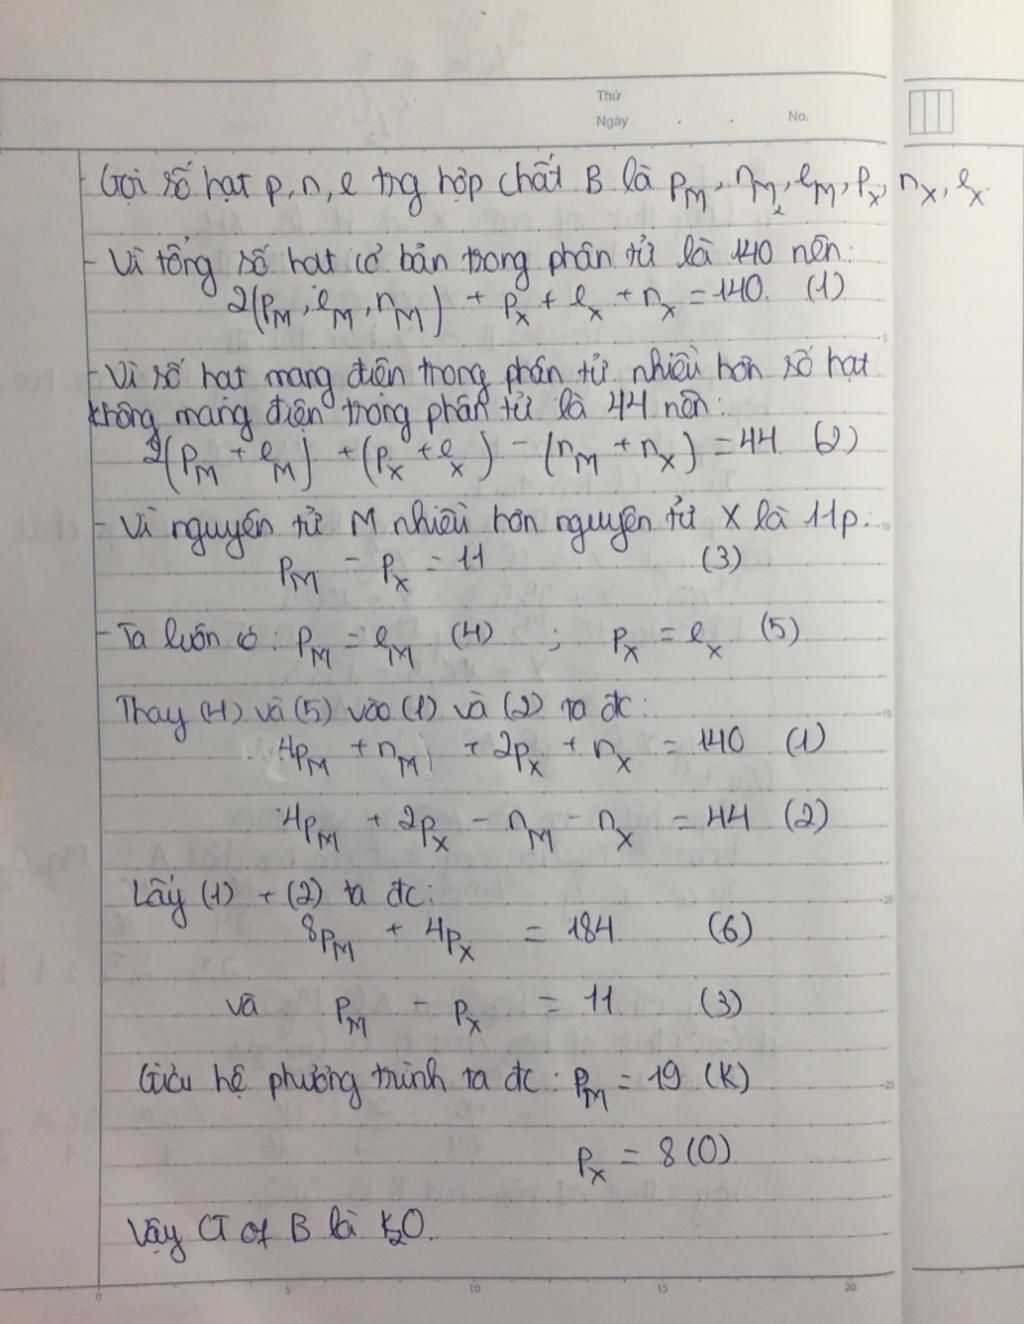 Thứ
Ngày . . No.
- Gọi số hạt p, n, e trg hợp chất B là p_M, n_M, e_M, p_X, n_X, e_X.
- Vì tổng số hạt cơ bản trong phân tử là 140 nên:
2(p_M, e_M, n_M) + p_X + e_X + n_X = 140. (1)
- Vì số hạt mang điện trong phân tử nhiều hơn số hạt
không mang điện trong phân tử là 44 nên:
2(p_M + e_M) + (p_X + e_X) - (n_M + n_X) = 44 (2)
- Vì nguyên tử M nhiều hơn nguyên tử X là 11p:
p_M - p_X = 11 (3)
- Ta luôn có: p_M = e_M (4) ; p_X = e_X (5)
Thay (4) và (5) vào (1) và (2) ta đc:
4p_M + n_M + 2p_X + n_X = 140 (1)
4p_M + 2p_X - n_M - n_X = 44 (2)
Lấy (1) + (2) ta đc:
8p_M + 4p_X = 184 (6)
và p_M - p_X = 11 (3)
Giải hệ phương trình ta đc: p_M = 19 (K)
p_X = 8 (O)
Vậy CT of B là K2O.
0 5 10 15 20